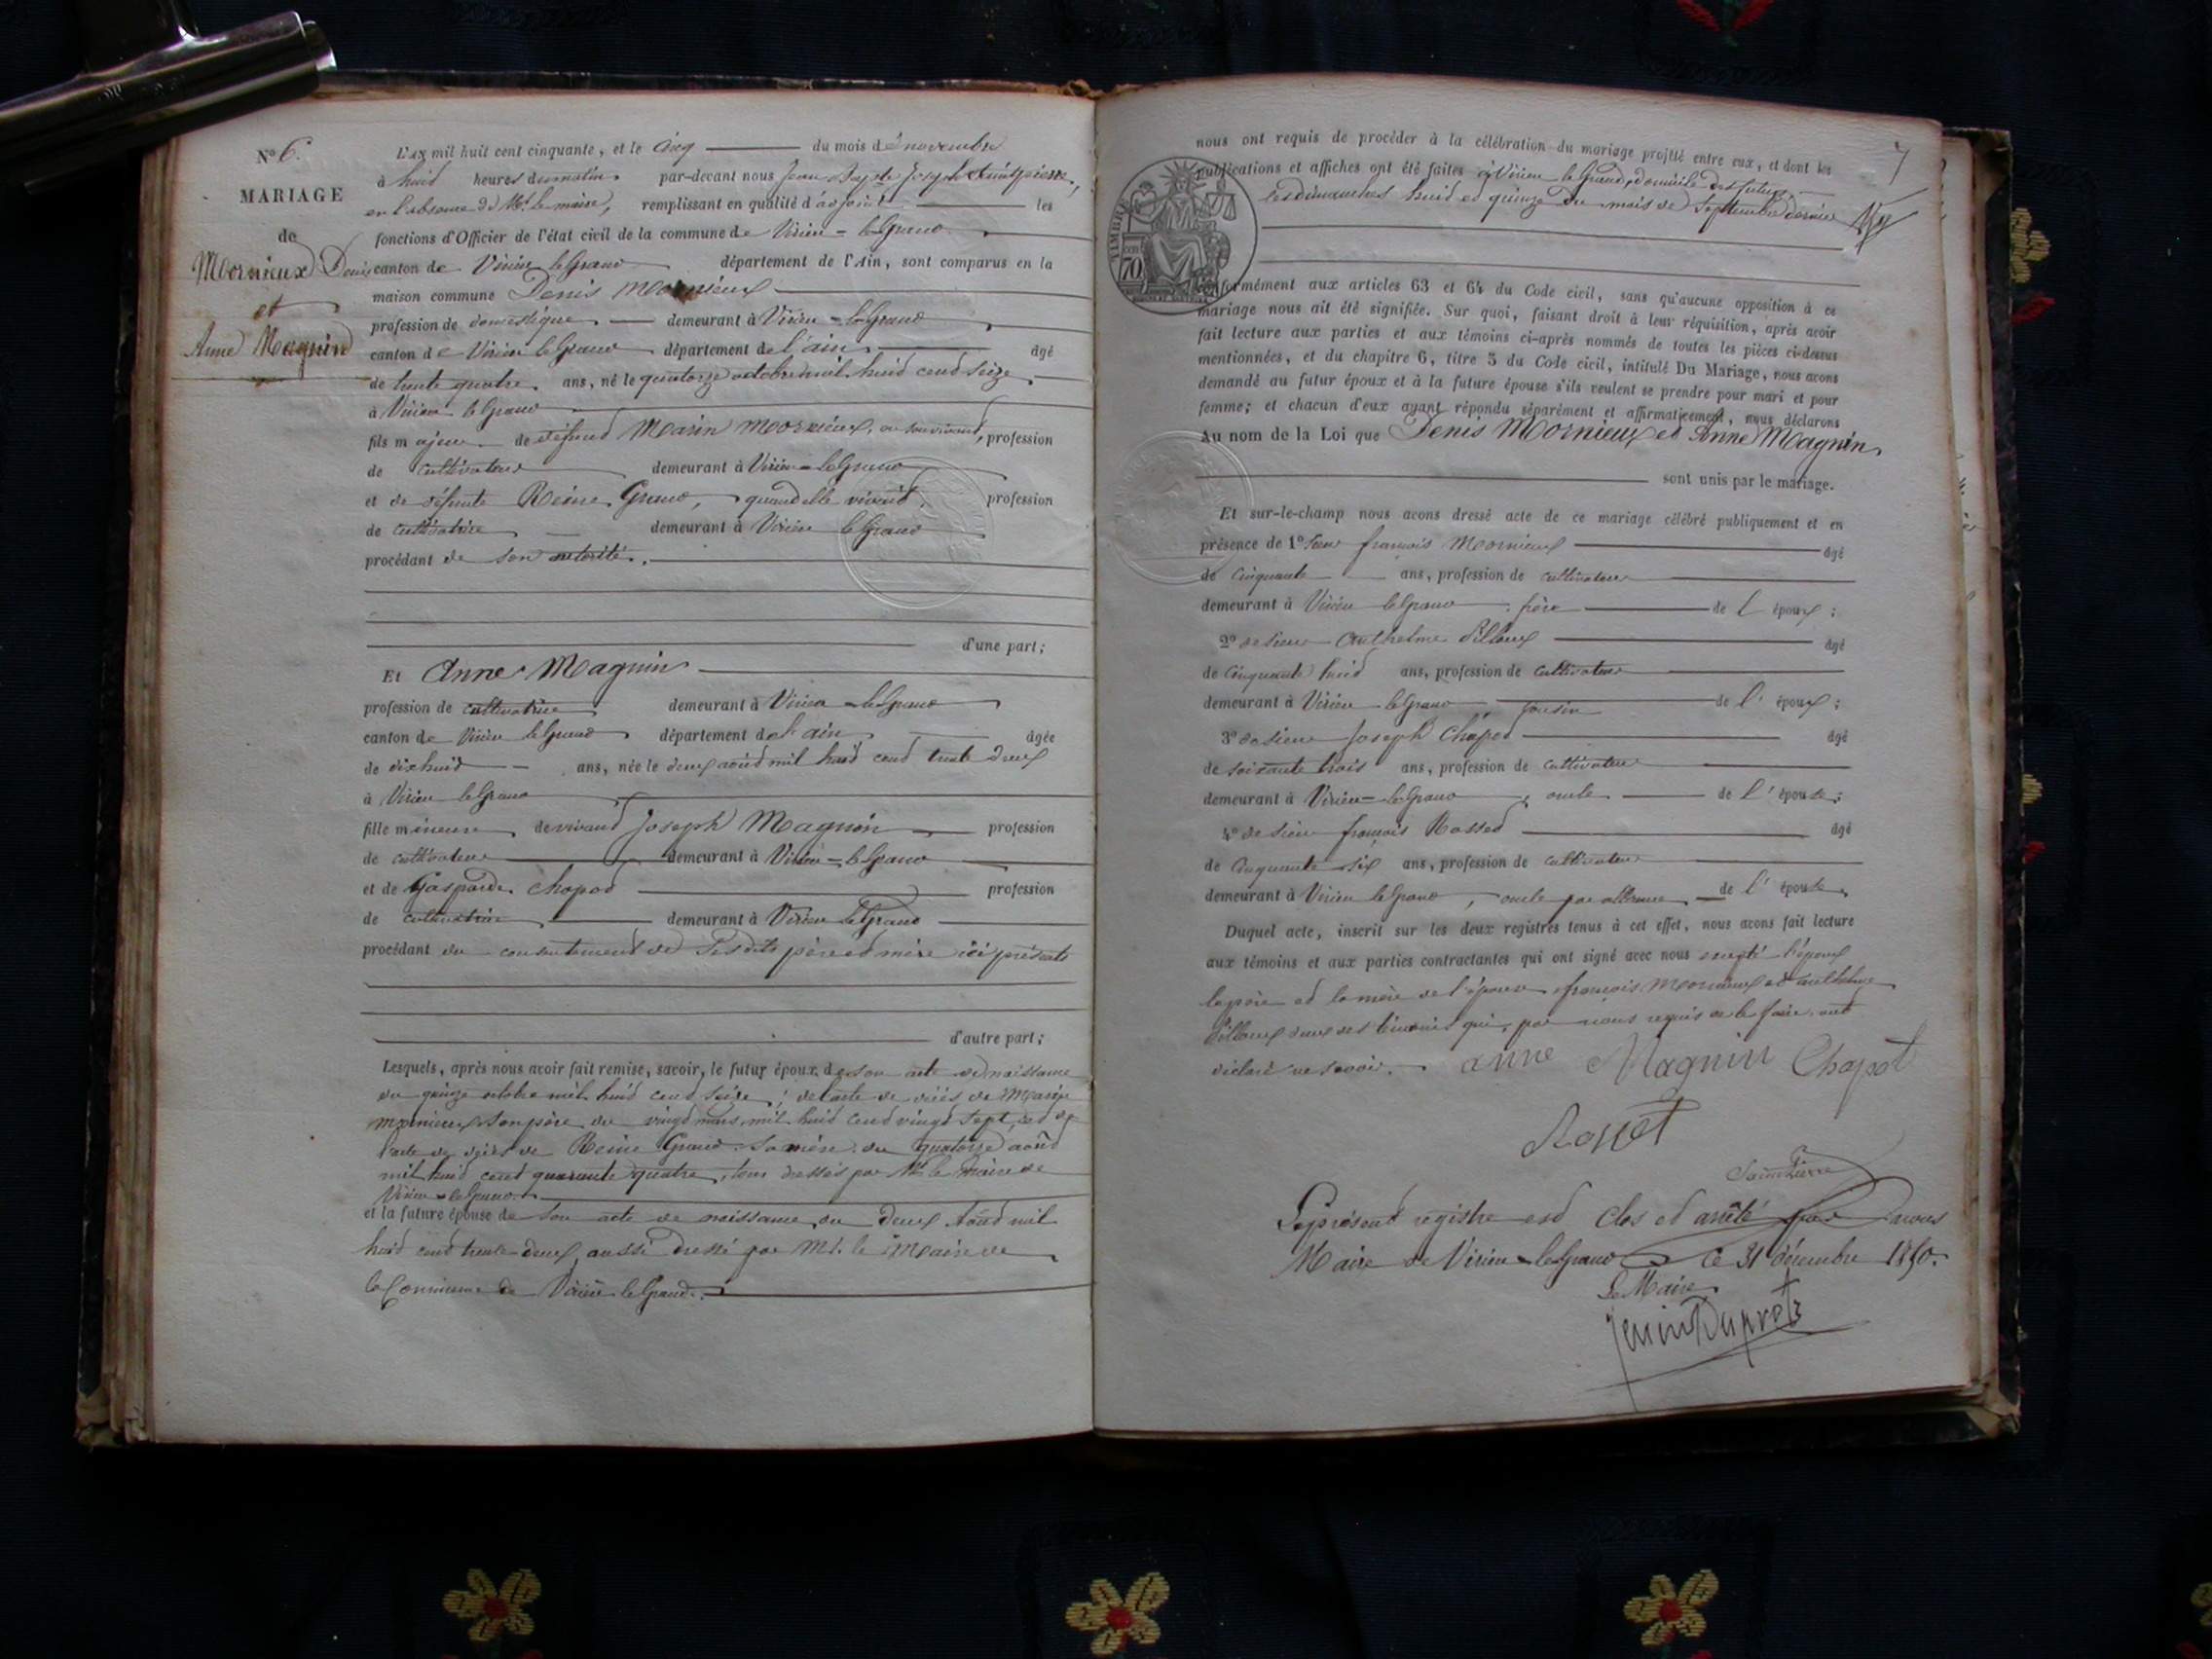 N° 6.
MARIAGE
de
Mornieux Denis
et
Anne Magnin
L'AN mil huit cent cinquante, et le cinq du mois de novembre
à huit heures du matin par-devant nous Jean Bapte Joseph Saintpierre,
en l'absence de Mr. le maire, remplissant en qualité d'adjoint les
fonctions d'Officier de l'état civil de la commune de Virieu=leGrand
canton de Virieu leGrand département de l'Ain, sont comparus en la
maison commune Denis Mornieux
profession de domestique demeurant à Virieu=leGrand
canton de Virieu leGrand département de l'ain âgé
de trente quatre ans, né le quatorze octobre mil huit cent seize
à Virieu leGrand
fils majeur de défunt Marin Mornieux, en son vivant, profession
de cultivateur demeurant à Virieu=leGrand
et de défunte Reine Grand, quand elle vivait, profession
de cultivatrice demeurant à Virieu leGrand
procédant de son autorité.
d'une part;
Et Anne Magnin
profession de cultivatrice demeurant à Virieu=leGrand
canton de Virieu leGrand département de l'ain âgée
de dix huit ans, née le deux août mil huit cent trente deux
à Virieu leGrand
fille mineure de vivant Joseph Magnin profession
de cultivateur demeurant à Virieu=leGrand
et de Gasparde Chapot profession
de cultivatrice demeurant à Virieu leGrand
procédant du consentement de sesdits père et mère ici présents
d'autre part;
Lesquels, après nous avoir fait remise, savoir, le futur époux, de son acte de naissance
du quinze octobre mil huit cent seize; de l'acte de décès de Marin
Mornieux son père du vingt mars mil huit cent vingt sept, et de
l'acte de décès de Reine Grand sa mère du quatorze août
mil huit cent quarante quatre, tous dressés par Mr. le Maire de
Virieu=leGrand.
et la future épouse de son acte de naissance du deux août mil
huit cent trente deux, aussi dressé par Mr. le Maire de
la Commune de Virieu leGrand.
7
nous ont requis de procéder à la célébration du mariage projeté entre eux, et dont les
publications et affiches ont été faites à Virieu leGrand, domicile des futurs,
les dimanches huit et quinze du mois de Septembre dernier
TIMBRE
70
conformément aux articles 63 et 64 du Code civil, sans qu'aucune opposition à ce
mariage nous ait été signifiée. Sur quoi, faisant droit à leur réquisition, après avoir
fait lecture aux parties et aux témoins ci-après nommés de toutes les pièces ci-dessus
mentionnées, et du chapitre 6, titre 5 du Code civil, intitulé Du Mariage, nous avons
demandé au futur époux et à la future épouse s'ils veulent se prendre pour mari et pour
femme; et chacun d'eux ayant répondu séparément et affirmativement, nous déclarons
Au nom de la Loi que Denis Mornieux et Anne Magnin
sont unis par le mariage.
Et sur-le-champ nous avons dressé acte de ce mariage célébré publiquement et en
présence de 1° sieur françois Mornieux âgé
de cinquante ans, profession de cultivateur
demeurant à Virieu leGrand, frère de l'époux;
2° de sieur Anthelme Silloux âgé
de cinquante huit ans, profession de cultivateur
demeurant à Virieu leGrand, cousin de l'époux;
3° de sieur Joseph Chapot âgé
de soixante trois ans, profession de cultivateur
demeurant à Virieu=leGrand, oncle de l'épouse;
4° de sieur françois Rosset âgé
de cinquante six ans, profession de cultivateur
demeurant à Virieu leGrand, oncle par alliance de l'épouse
Duquel acte, inscrit sur les deux registres tenus à cet effet, nous avons fait lecture
aux témoins et aux parties contractantes qui ont signé avec nous excepté l'époux
le père et la mère de l'épouse françois Mornieux et anthelme
Silloux deux des témoins qui, par nous requis de le faire, ont
déclaré ne savoir. anne Magnin Chapot
Rosset
SaintPierre
Le présent registre est clos et arrêté par nous
Maire de Virieu=leGrand ce 31 décembre 1850.
Le Maire